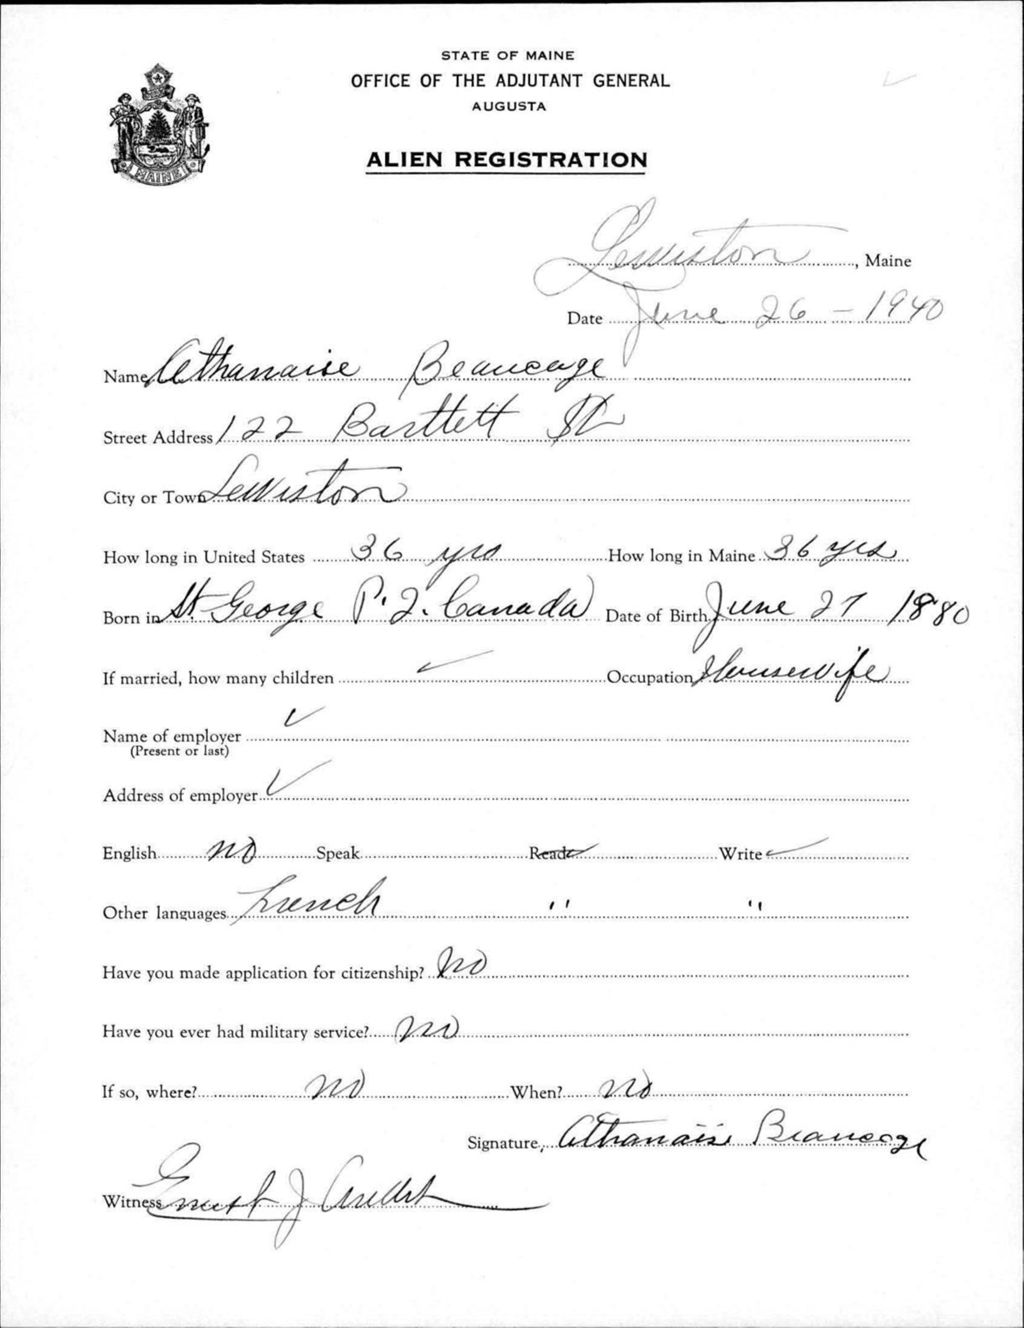 STATE OF MAINE
OFFICE OF THE ADJUTANT GENERAL
AUGUSTA
ALIEN REGISTRATION
Lewiston, Maine
Date June 26 - 1940
Name Athanaise Beaucage
Street Address 122 Bartlett St
City or Town Lewiston
How long in United States 36 yrs How long in Maine 36 yrs
Born in St. George P.Q. Canada Date of Birth June 27 1880
If married, how many children ✓ Occupation Housewife
Name of employer ✓
(Present or last)
Address of employer ✓
English no Speak Read Write
Other languages French " "
Have you made application for citizenship? No
Have you ever had military service? No
If so, where? no When? no
Signature Athanaise Beaucage
Witness Ernest J